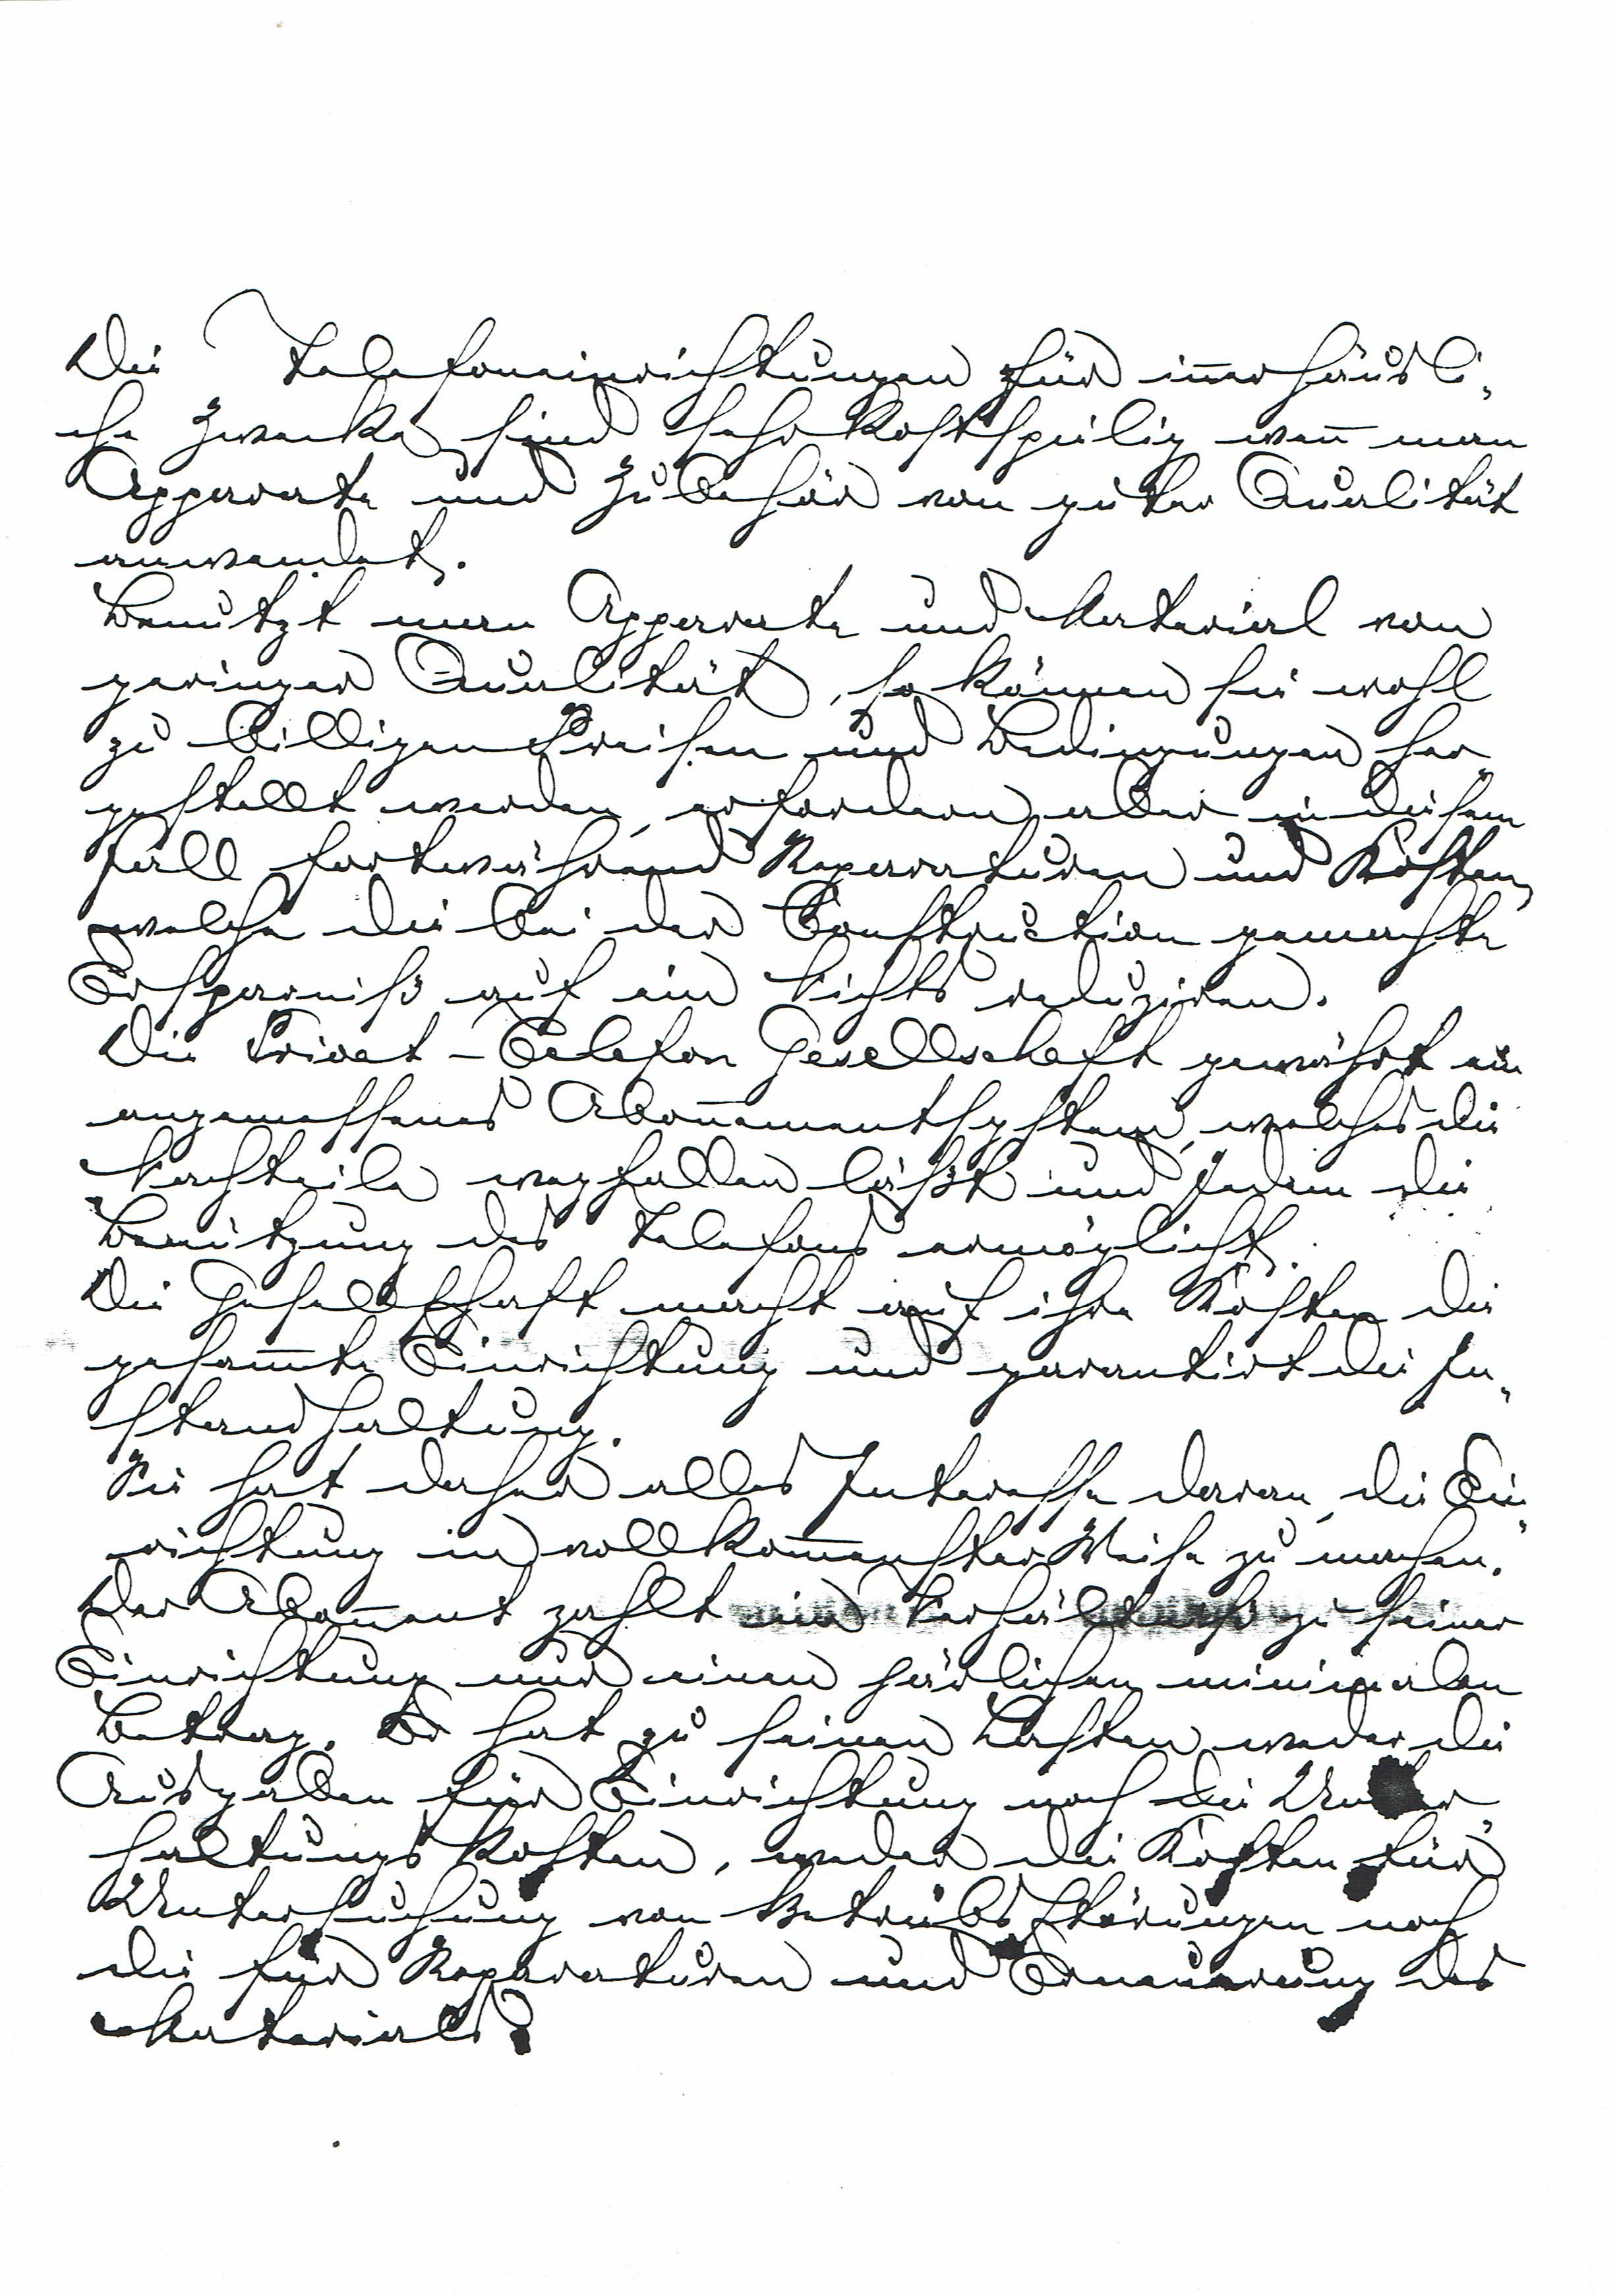 Die Telefoneinrichtungen für innerhäusli„
che Zwecke sind sehr kostspielig wenn man
Apparate und Zubehör von guter Qualität
anwendet.
Benützt man Apparate und Material von
geringer Qualität, so können sie wohl
zu billigen Preisen und Bedingungen her„
gestellt werden, erfordern aber in diesem
Fall fortwährend Reparaturen und Kosten,
welche die bei der Construction gemachte
Ersparniß auf ein Nichts reduziren.
Die Privat-Telefon Gesellschaft gewährt ein
angemessenes Abonnementsystem, welches die
Nachteile wegfallen läßt und Jedem die
Benützung des Telefons ermöglicht.
Die Gesellschaft macht auf ihre Kosten die
gesammte Einrichtung und garantirt die In„
standhaltung.
Sie hat daher alles Interesse daran, die Ein„
richtung in vollkommenster Weise zu machen.
Der Abonnent zahlt im Verhältniß zu seiner
Einrichtung nur einen jährlichen minimalen
Betrag. Er hat zu seinen Lasten weder die
Ausgaben für Einrichtung noch die Unter„
haltungskosten, weder die Kosten für
Untersuchung von Betriebsstörungen noch
die für Reparaturen und Erneuerung des
Materials.